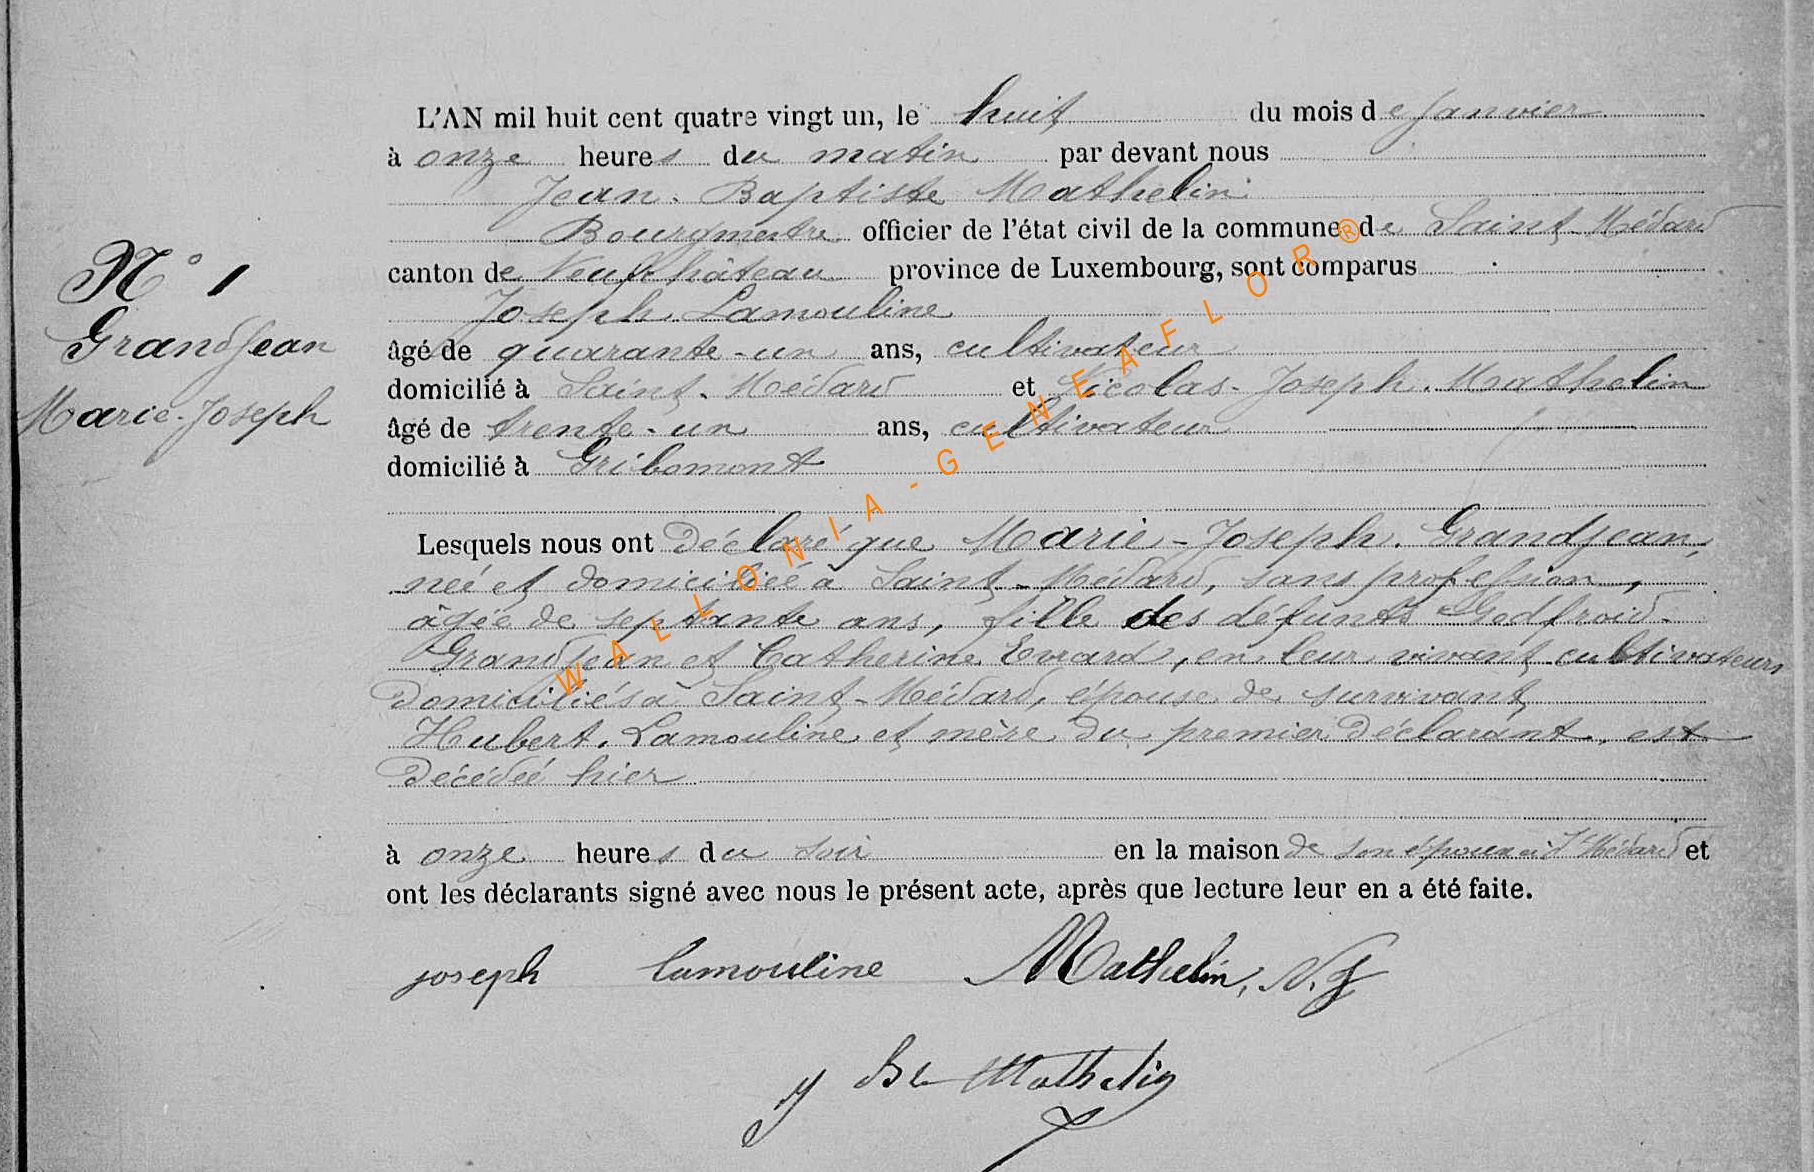 L'AN mil huit cent quatre vingt un, le huit du mois de Janvier
à onze heures du matin par devant nous
Jean-Baptiste Mathelin
Bourgmestre officier de l'état civil de la commune de Saint-Médard
canton de Neufchâteau province de Luxembourg, sont comparus
Joseph Lamouline
âgé de quarante-un ans, cultivateur
domicilié à Saint-Médard et Nicolas-Joseph Mathelin
âgé de trente-un ans, cultivateur
domicilié à Gribomont
N° 1
Grandjean
Marie-Joseph
Lesquels nous ont déclaré que Marie-Joseph Grandjean,
neé et domiciliée à Saint-Médard, sans profession,
âgée de septante ans, fille des défunts Godfroid
Grandjean et Catherine Evrard, en leur vivant cultivateurs
domiciliés à Saint-Médard, épouse de survivant
Hubert Lamouline et mère du premier déclarant, est
décédeé hier
à onze heures du soir en la maison de son époux à St Médard et
ont les déclarants signé avec nous le présent acte, après que lecture leur en a été faite.
joseph lamouline Mathelin, N. J
J Bte Mathelin
WALLONIA-GENEAFLOR®